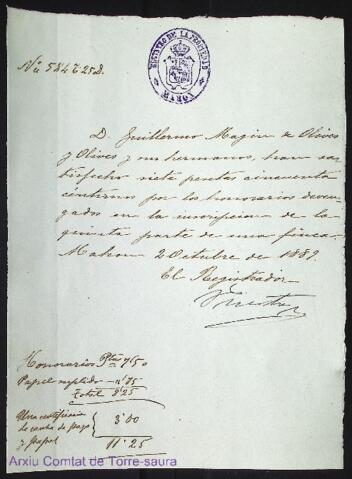 REGISTRO DE LA PROPIEDAD
MAHON
D. Guillermo Magin de Olives
y Olives y sus hermanos, han sa-
tisfecho siete pesetas cincuenta
céntimos por los honorarios deven-
gados en la inscripcion de la
quinta parte de una finca.
Mahon 2 Octubre de 1889.
El Registrador
Honorarios Ptas 7'50
Papel suplido - "'75
Total 8'25
Una certificacion
de carta de pago
y papel
3'00
11'25
Arxiu Comtat de Torre-saura